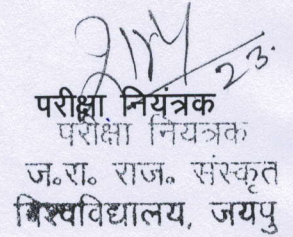 23.
परीक्षा नियंत्रक
परीक्षा नियंत्रक
ज॰रा॰ राज॰ संस्कृत
विश्वविद्यालय, जयपु